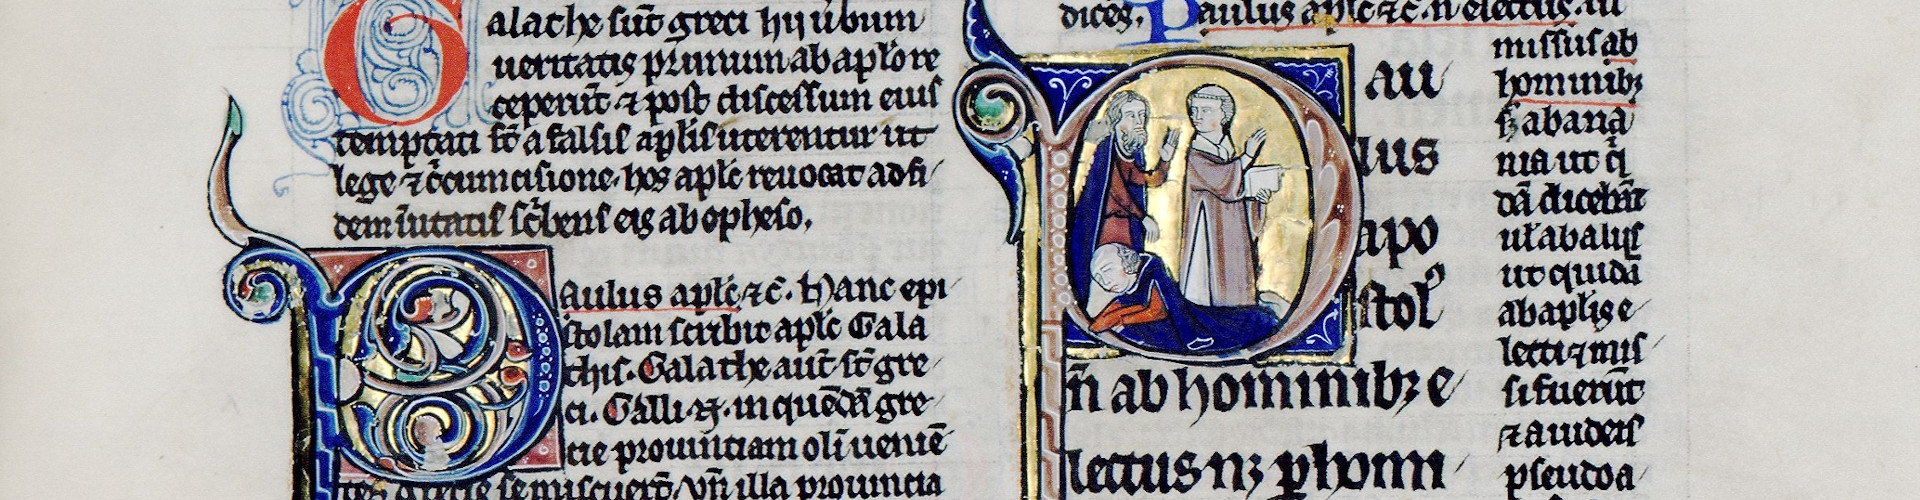 Galathe sūt greci hij ūbum
ueritatis pͥmum ab aplo re
ceperūt ⁊ post discessum eius
temptati sūt a falsis aplis ut uerentur ut
lege ⁊ c̄cumcisione. hos aplc reuocat ad fi
dem
eis ab opheso.
Paulus aplc ⁊c̄. Hanc epi
stolam scribit aplc Gala
this. Galathe aut̄ st̄ gre
ci. Galli .n. in quēdā gre
cie prouinciam oli ueniē
tes grecis se miscuerūt illa prouincia
dices. Paulus aplc ⁊c̄. n̄ electus.
Pau
lus
apo
stolꝰ
n̄ ab hominibꝫ e
lectus nꝫ ꝑ homi
missus ab
hominibꝫ
sꝫ ab anā
nia ut q̄
dā dicebāt
ul̄ ab aliis
ut quidā
ab aplis e
lecti ⁊ mis
si fuerūt
⁊ a iudeis
pseudo a